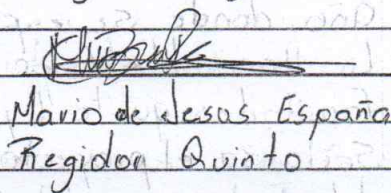 Mario de Jesus España
Regidor Quinto